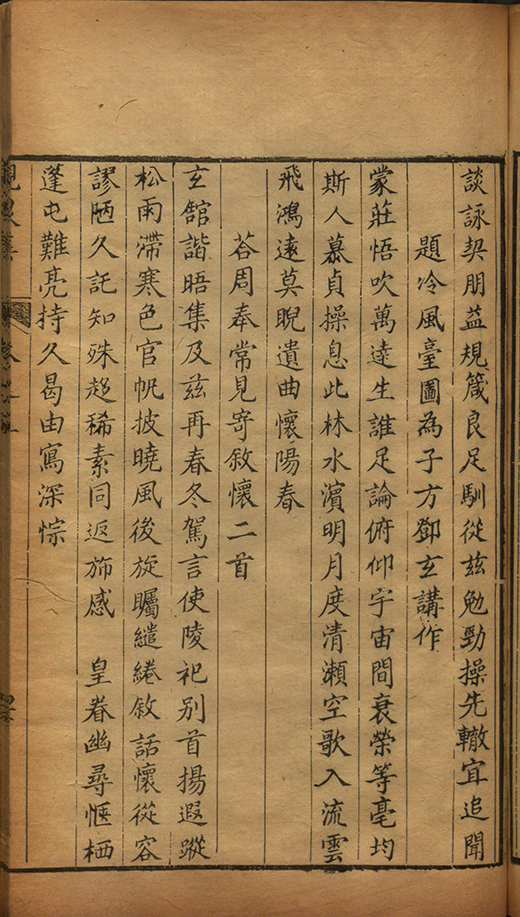 談詠契朋益規箴良足馴從茲勉勁操先轍宜追聞
題冷風臺圖為子方鄧玄講作
蒙莊悟吹萬達生誰足論俯仰宇宙間衰榮等毫均
斯人慕貞操息此林水濵明月度清瀬空歌入流雲
飛鴻遠莫睨遺曲懷陽春
荅周奉常見寄敘懷二首
玄舘諧晤集及茲再春冬駕言使陵祀别首揚遐蹤
松雨滯寒色官帆披曉風後旋矚繾綣敘話懷從容
謬陋久託知殊超稀素同返斾感 皇眷幽尋愜栖
蓬屯難亮持久曷由寫深悰